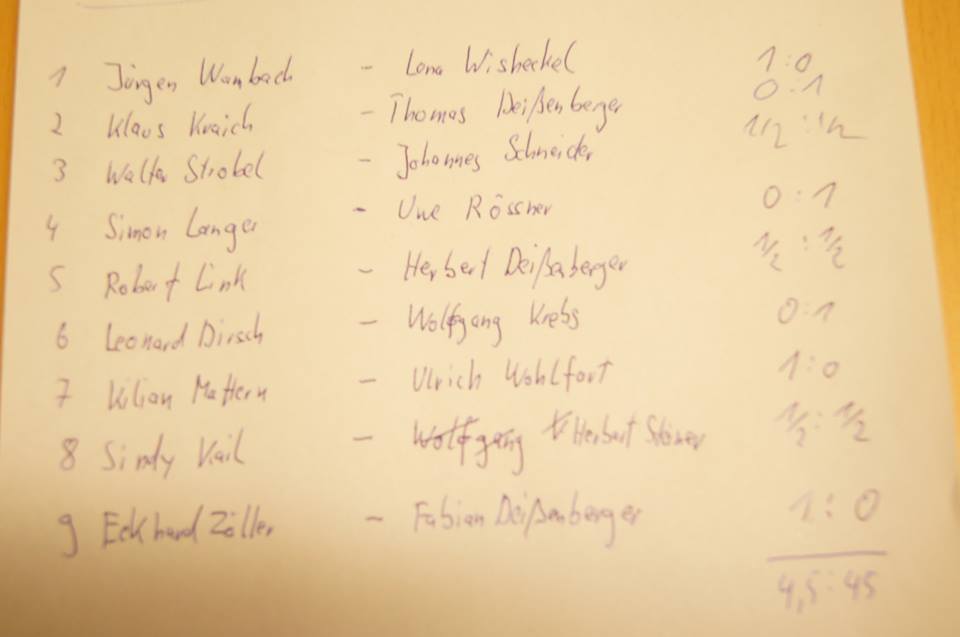 1 Jürgen Wambach - Lena Wisheckel 1:0
2 Klaus Kraich - Thomas Deißenberger 0:1
3 Walter Strobel - Johannes Schneider 1/2:1/2
4 Simon Langer - Uwe Rössner 0:1
5 Robert Link - Herbert Deißenberger 1/2:1/2
6 Leonard Dirsch - Wolfgang Krebs 0:1
7 Kilian Mattern - Ulrich Wohlfort 1:0
8 Sindy Kail - Wolfgang Herbert 1/2:1/2
9 Eckhard Zöller - Fabian Deißenberger 1:0
4,5:45